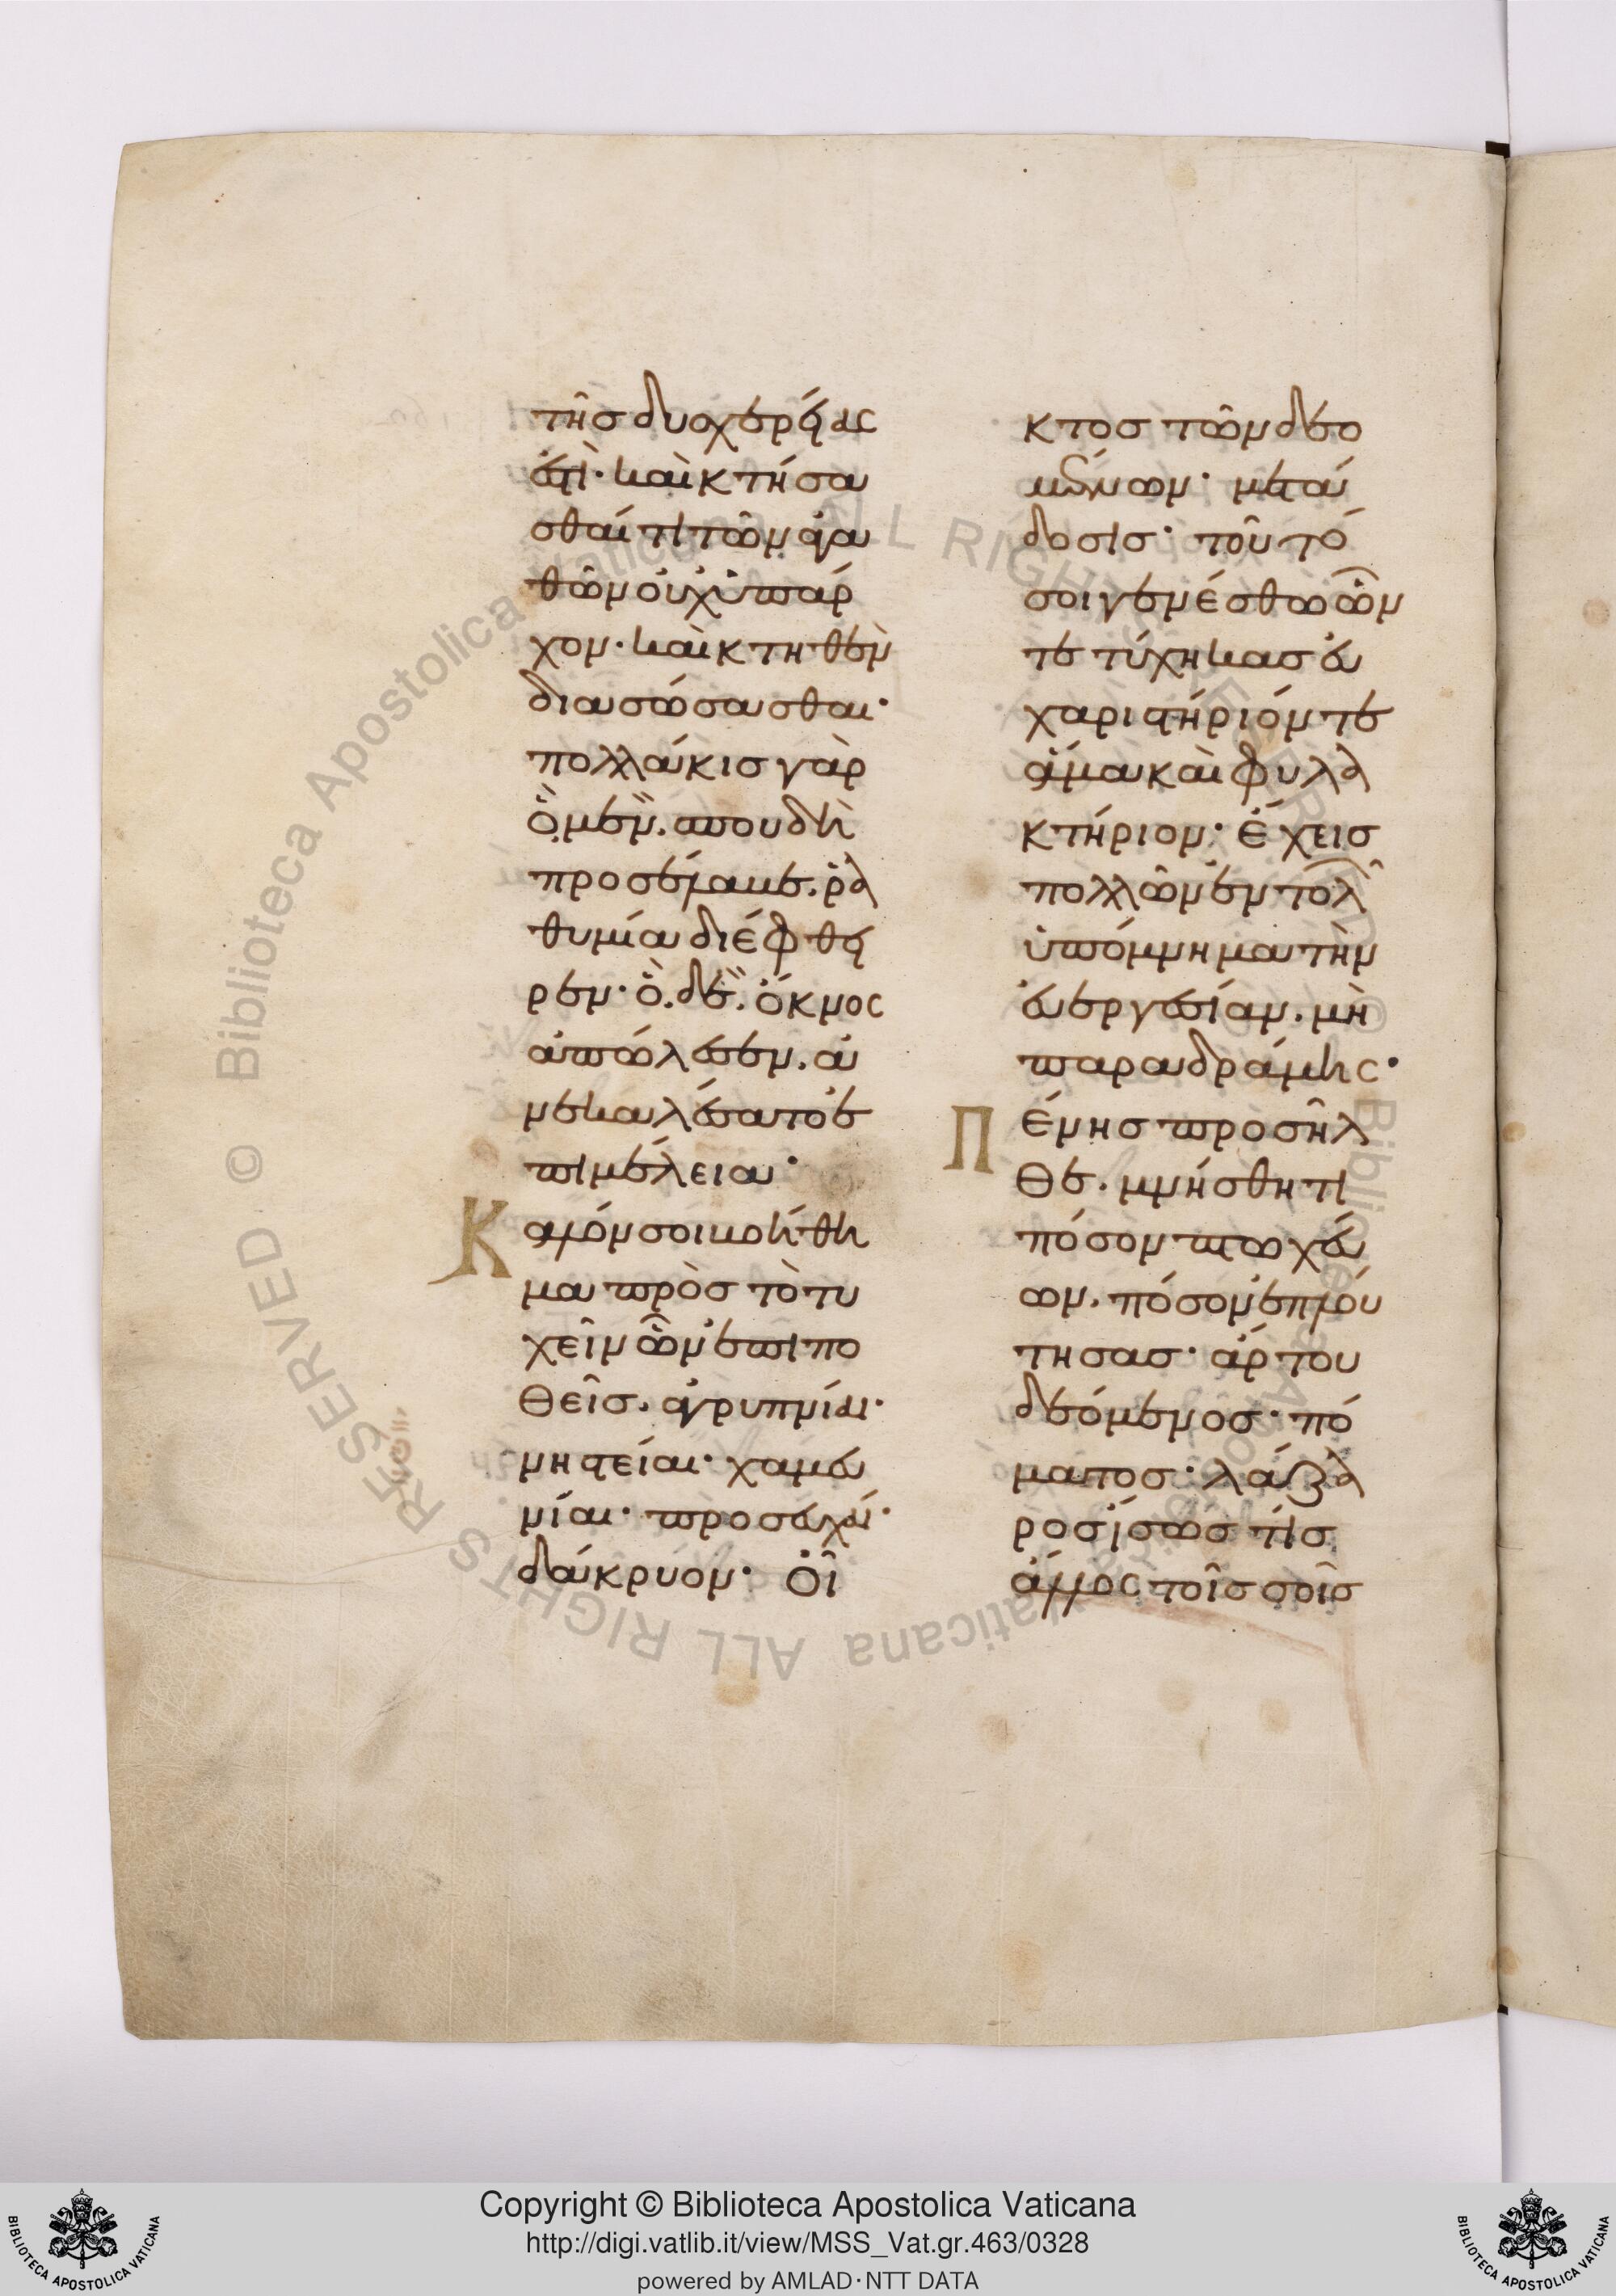 τῆσ δυσχερείας
ἐστὶ· καὶ κτήσα
σθαί τι τῶν ἀγα
θῶν οὐχ ὑπάρ
χον· καὶ κτηθὲν
διασώσασθαι·
πολλάκισ γὰρ
ὃ μὲν. σπουδὴ
προσέλαβε. ῥα
θυμία διέφθει
ρεν· ὃ. δὲ. ὄκνος
ἀπώλεσεν. ἀ
νεκαλέσατο ἐ
πιμέλεια·
Καλόν σοι βοήθη
μα πρὸσ τὸ τυ
χεῖν ὧν ἐπιπο
θεῖσ. ἀγρυπνίαι·
νηστείαι· χαμευ
νίαι· προσευχαί·
δάκρυον· οἶ
κτοσ τῶν δεο
μένων· μετά
δοσισ· τοῦτό
σοι γενέσθω ὧν
τετύχηκασ εὐ
χαριστήριόν τε
ἅμα καὶ φυλα
κτήριον· ἔχεισ
πολλῶν ἐντολῶ
ὑπόμνημα τὴν
εὐεργεσίαν. μὴ
παραδράμης·
Πένησ προσῆλ
θε. μνήσθητι
πόσον πτωχεύ
ων. πόσον ἐπλού
τησασ· ἄρτου
δεόμενοσ· πό
ματοσ· λάζα
ροσ ἴσωσ τίσ
ἄλλος τοῖσ σοῖσ
Copyright © Biblioteca Apostolica Vaticana
http://digi.vatlib.it/view/MSS_Vat.gr.463/0328
powered by AMLAD·NTT DATA
BIBLIOTECA APOSTOLICA VATICANA
BIBLIOTECA APOSTOLICA VATICANA